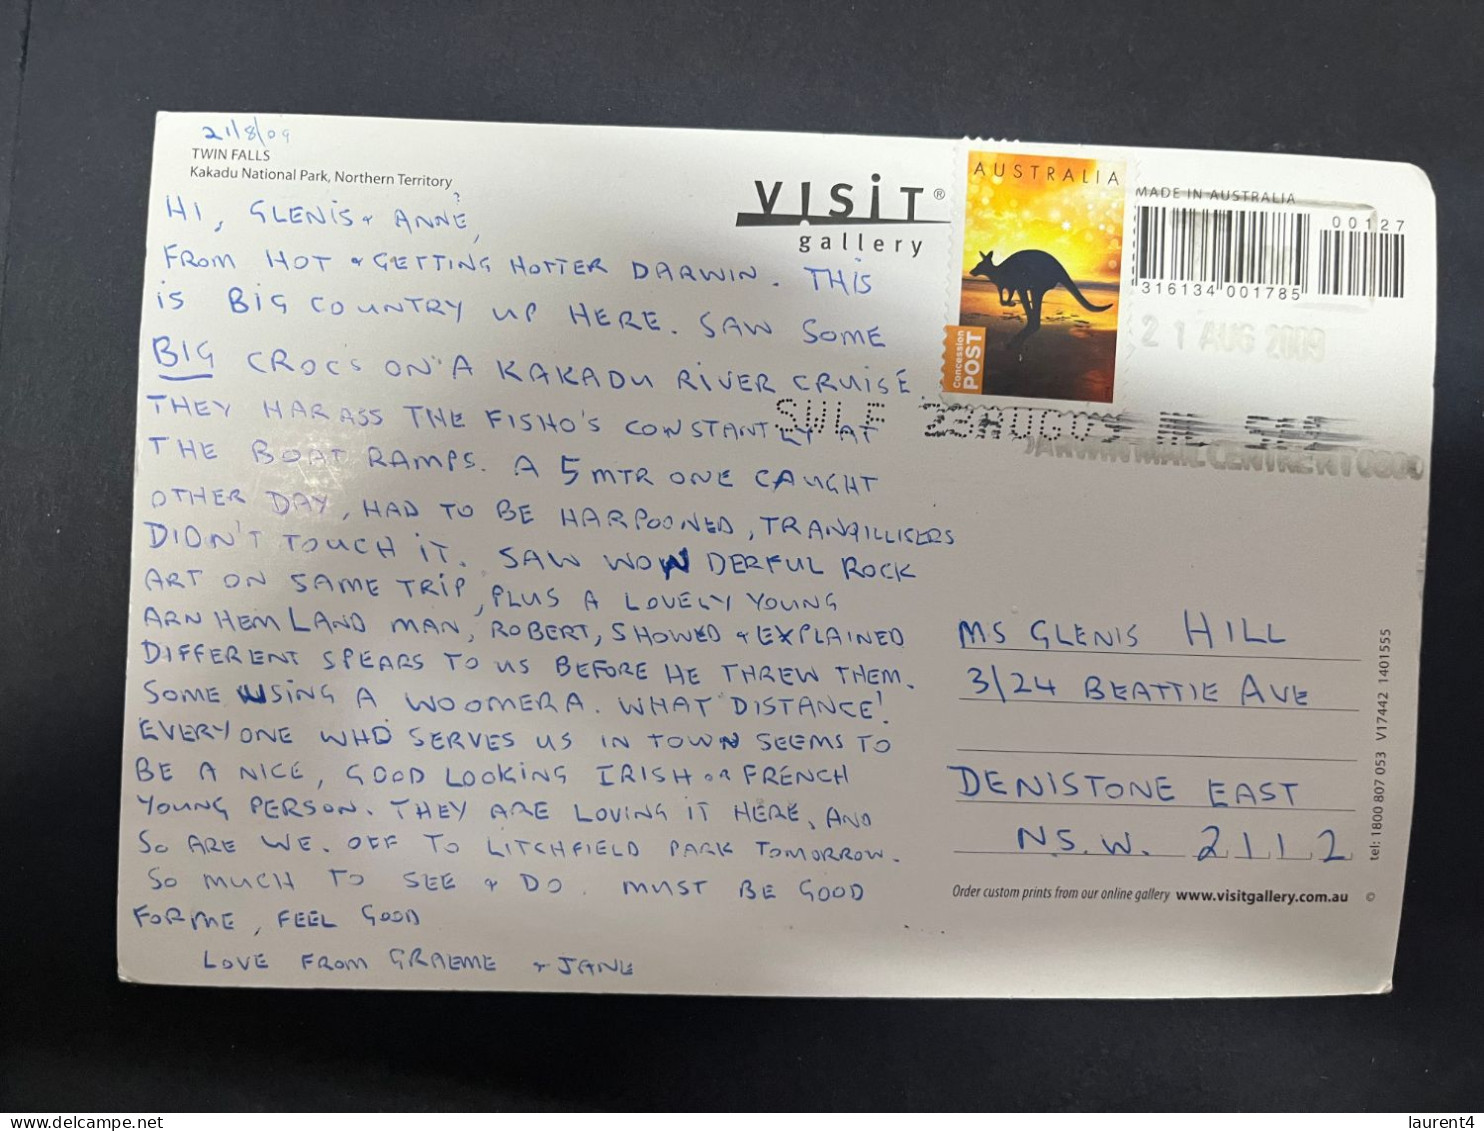 21/8/09
TWIN FALLS
Kakadu National Park, Northern Territory
HI, GLENIS & ANNE,
FROM HOT & GETTING HOTTER DARWIN. THIS
IS BIG COUNTRY UP HERE. SAW SOME
BIG CROC'S ON A KAKADU RIVER CRUISE.
THEY HARASS THE FISHO'S CONSTANTLY AT
THE BOAT RAMPS. A 5 MTR ONE CAUGHT
OTHER DAY, HAD TO BE HARPOONED, TRANQILLISERS
DIDN'T TOUCH IT. SAW WONDERFUL ROCK
ART ON SAME TRIP, PLUS A LOVELY YOUNG
ARNHEM LAND MAN, ROBERT, SHOWED & EXPLAINED
DIFFERENT SPEARS TO US BEFORE HE THREW THEM.
SOME USING A WOOMERA. WHAT DISTANCE!
EVERYONE WHO SERVES US IN TOWN SEEMS TO
BE A NICE, GOOD LOOKING IRISH OR FRENCH
YOUNG PERSON. THEY ARE LOVING IT HERE, AND
SO ARE WE. OFF TO LITCHFIELD PARK TOMORROW.
SO MUCH TO SEE & DO. MUST BE GOOD
FOR ME, FEEL GOOD
LOVE FROM GRAEME & JANE
VISIT®
gallery
AUSTRALIA
Concession
POST
MADE IN AUSTRALIA
00127
316134 001785
21 AUG 2009
SWLF 23AUG09
DARWIN MAIL CENTRE NT 0800
MS GLENIS HILL
3/24 BEATTIE AVE
DENISTONE EAST
N.S.W. 2112
Order custom prints from our online gallery www.visitgallery.com.au ©
tel: 1800 807 053 V17442 1401555
laurent4